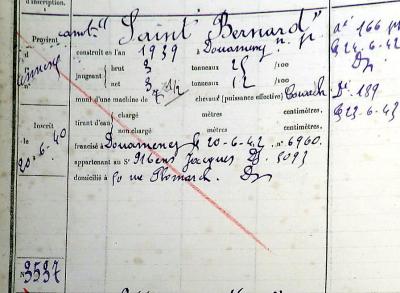 d'inscription.
Provient
canot "Saint Bernard" n. p.
construit en l'an 1939 à Douarnenez
jaugeant brut 3 tonneaux 25 /100
net 3 tonneaux 12 /100
muni d'une machine de 7 chevaux (puissance effective)
tirant d'eau chargé mètres centimètres.
non chargé mètres centimètres.
francisé à Douarnenez le 20-6-42 n° 6960.
appartenant au Sr Jacques Dz 5093
domicilié à 50 rue Plomarch. Dz
Inscrit
le
20-6-40
N° 3537
n° 166
24-6-42
Dz
D. 189
23-6-43